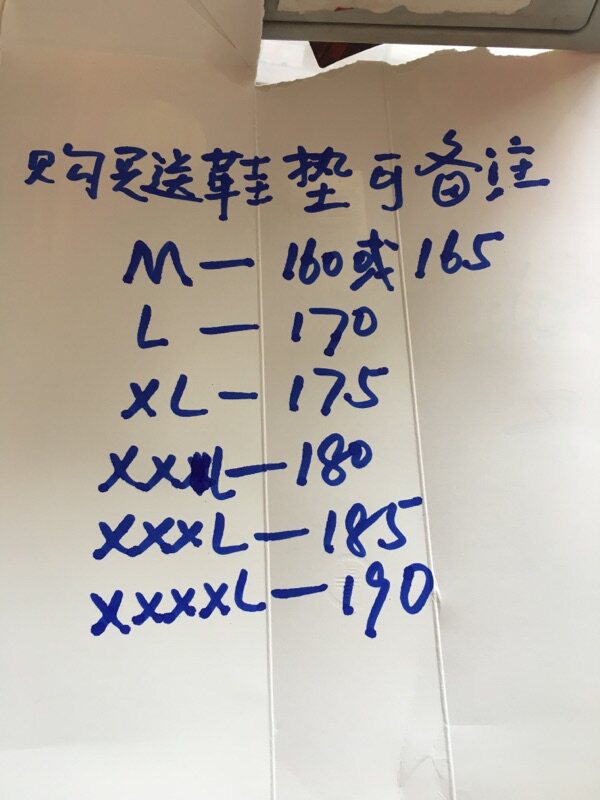 购买送鞋垫可备注
M—160或165
L—170
XL—175
XXL—180
XXXL—185
XXXXL—190